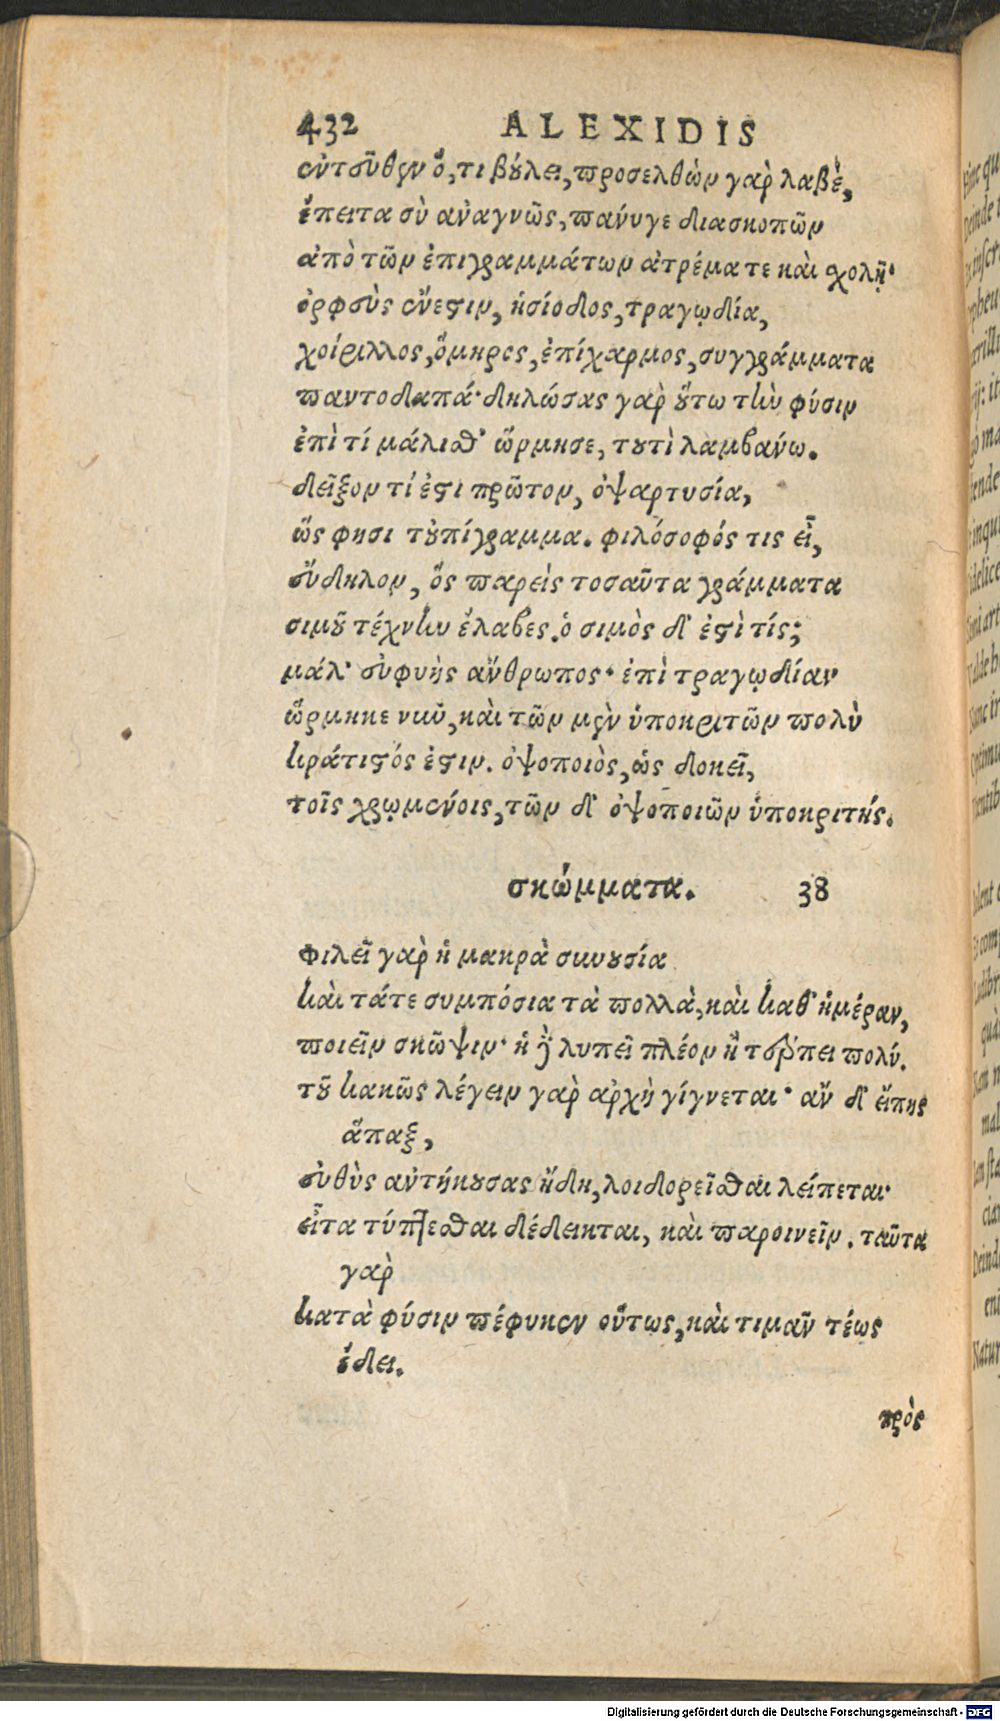 432 ALEXIDIS
ἐντεῦθεν ὅ,τι βούλει, προσελθὼν γὰρ λαβὲ,
ἔπειτα σὺ ἀναγνῶς, πανύγε διασκοπῶν
ἀπὸ τῶν ἐπιγραμμάτων ἀτρέμα τε καὶ σχολῇ·
ὀρφεὺς ἔνεστιν, ἡσίοδος, τραγῳδία,
χοίριλλος, ὅμηρος, ἐπίχαρμος, συγγράμματα
παντοδαπά· δηλώσας γὰρ οὕτω τὴν φύσιν
ἐπὶ τί μάλισθ' ὥρμησε, τουτὶ λαμβανώ.
δεῖξον τί ἐστι πρῶτον, ὀψαρτυσία,
ὥς φησι τοὐπίγραμμα. φιλόσοφός τις εἶ,
εὔδηλον, ὅς παρεὶς τοσαῦτα γράμματα
σιμοῦ τέχνην ἔλαβες. ὁ σιμὸς δ' ἐστὶ τίς;
μάλ' εὐφυὴς ἄνθρωπος· ἐπὶ τραγῳδίαν
ὥρμηκε νῦν, καὶ τῶν μὲν ὑποκριτῶν πολὺ
κράτιστός ἐστιν. ὀψοποιὸς, ὡς δοκεῖ,
τοῖς χρωμένοις, τῶν δ' ὀψοποιῶν ὑποκριτής.
σκώμματα. 38
Φιλεῖ γὰρ ἡ μακρὰ συνουσία
καὶ τάτε συμπόσια τὰ πολλὰ, καὶ καθ' ἡμέραν,
ποιεῖν σκῶψιν· ἡ δὲ λυπεῖ πλέον ἢ τέρπει πολύ.
τοῦ κακῶς λέγειν γὰρ ἀρχὴ γίγνεται· ἂν δ' εἴπης
ἅπαξ,
εὐθὺς ἀντήκουσας ἤδη, λοιδορεῖσθαι λείπεται·
εἶτα τύπτεσθαι δέδεικται, καὶ παροινεῖν. ταῦτα
γὰρ
κατὰ φύσιν πέφυκεν οὕτως, καὶ τιμαῖν τέως
ἔδει.
πρὸς
Digitalisierung gefördert durch die Deutsche Forschungsgemeinschaft - DFG